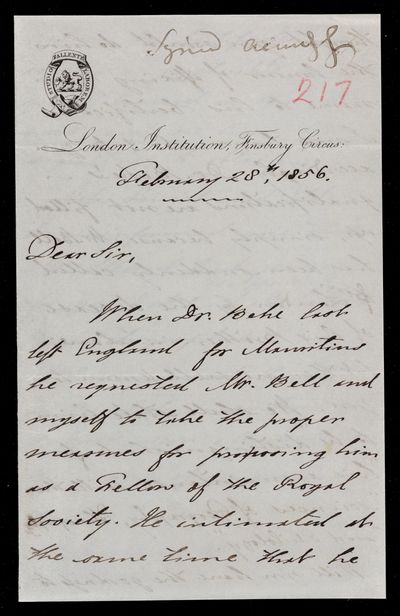 Signed
217
STUDIO FALLENTE LABOREM
London Institution, Finsbury Circus:
February 28th, 1856.
Dear Sir,
When Dr. Beke last
left England for Mauritius
he requested Mr. Bell and
myself to take the proper
measures for proposing him
as a Fellow of the Royal
Society. He intimated at
the same time that he